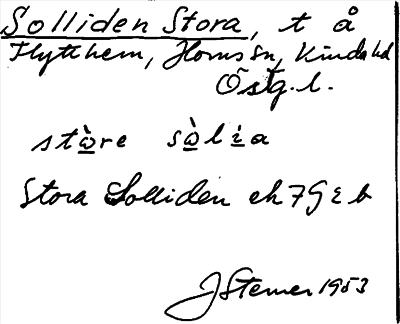 Solliden Stora, t å
Flytthem, Horns sn, Kinda hd
Östg. l.
stὰre sὰlia
Stora Solliden ek 7G2b
J Stemer 1953